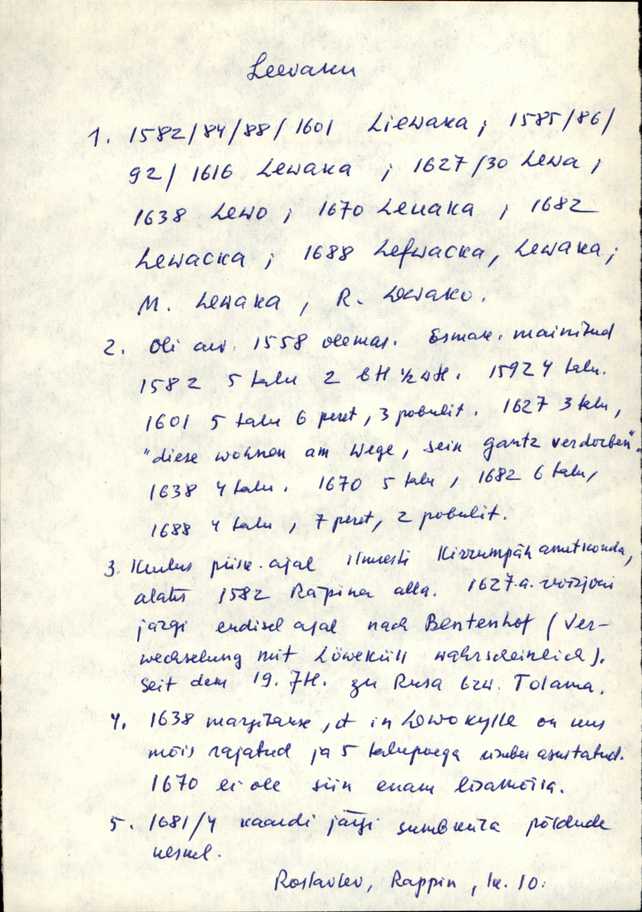 Leevaku
1. 1582/84/88/1601 Liewaka; 1585/86/
92/1616 Lewaka; 1627/30 Lewa;
1638 Lewo; 1670 Leuaka; 1682
Lewacka; 1688 Lefwacka, Lewaka;
M. Lewaka, R. Lewako.
2. Oli arv. 1558 olemas. Esmak. mainitud
1582 5 talu 2 bH ½ wH. 1592 4 talu.
1601 5 talu 6 peret, 3 pobulit. 1627 3 talu,
"diese wohnen am Wege, sein gantz verdorben".
1638 4 talu. 1670 5 talu, 1682 6 talu,
1688 4 talu, 7 peret, 2 pobulit.
3. Kuulus piisk. ajal ilmsesti Kirrumpäh ametkonda,
alates 1582 Räpina alla. 1627.a. revisjoni
järgi endisel ajal nach Bentenhof (Ver-
wechselung mit Löweküll wahrscheinlich).
Seit dem 19. JH. zu Rusa bzw. Tolama.
4. 1638 märgitakse, et in Lewokylle on uus
mõis rajatud ja 5 talupoega ümber asustatud.
1670 ei ole siin enam lisamõisa.
5. 1681/4 kaardi järgi sumbküla põldude
keskel.
Roslavlev, Rappin, lk. 10.